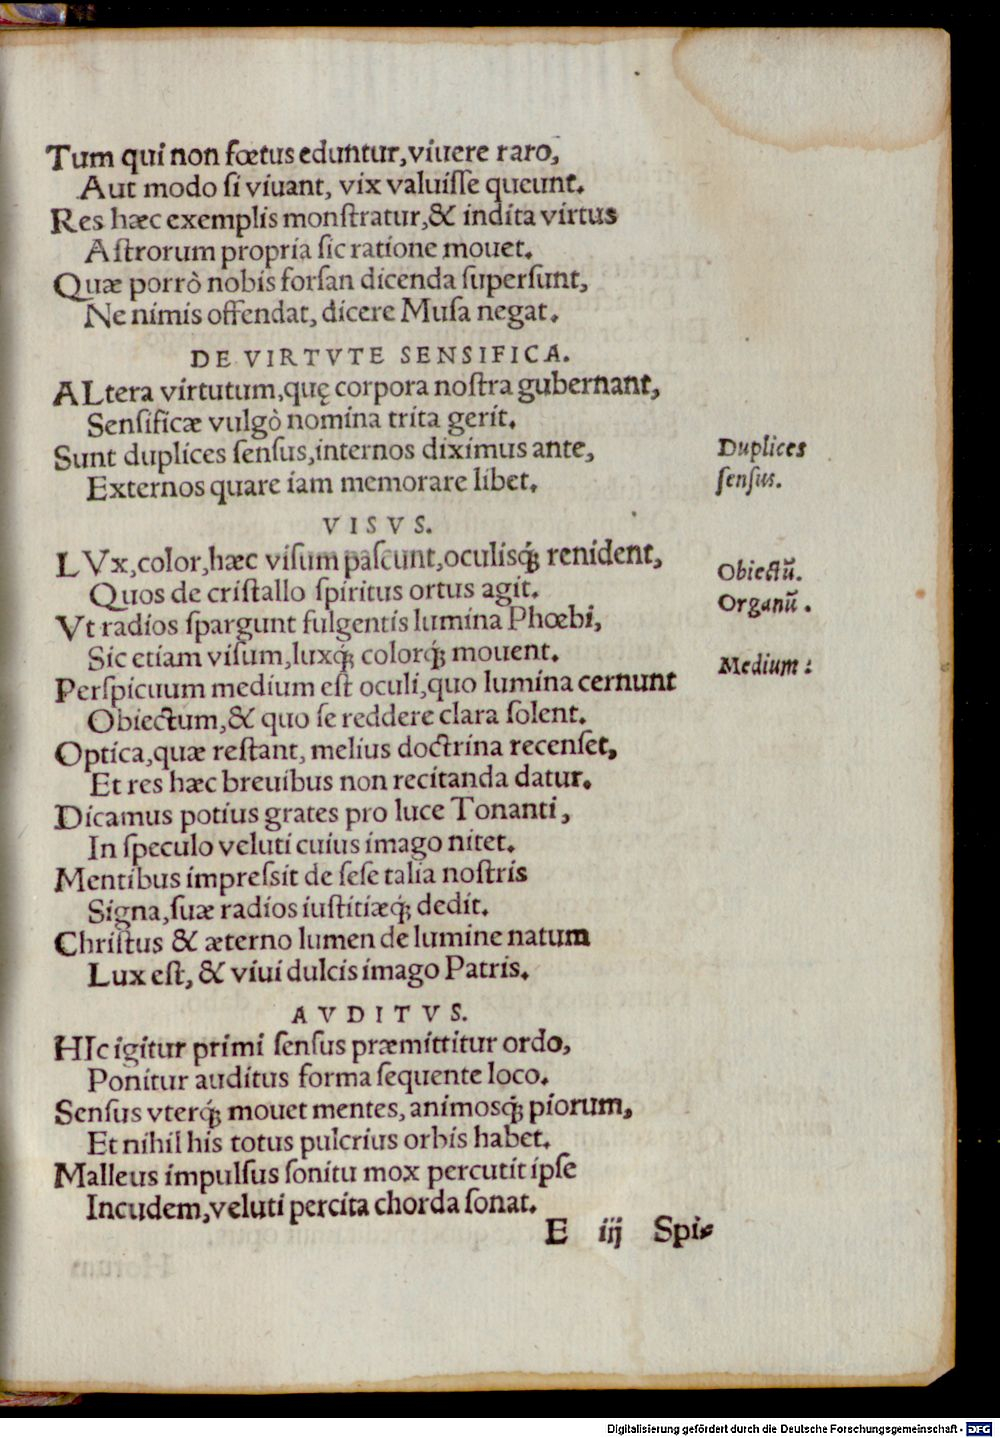 Tum qui non fœtus eduntur, viuere raro,
Aut modo si viuant, vix valuisse queunt.
Res hæc exemplis monſtratur, & indita virtus
Aſtrorum propria ſic ratione mouet.
Quæ porrò nobis forſan dicenda ſuperſunt,
Ne nimis offendat, dicere Muſa negat.
DE VIRTVTE SENSIFICA.
ALtera virtutum, quę corpora noſtra gubernant,
Senſificæ vulgò nomina trita gerit.
Sunt duplices ſenſus, internos diximus ante,
Duplices
Externos quare iam memorare libet.
ſenſus.
VISVS.
LVx, color, hæc viſum paſcunt, oculisq́; renident,
Obiectū.
Quos de criſtallo ſpiritus ortus agit.
Organū.
Vt radios ſpargunt fulgentis lumina Phœbi,
Sic etiam viſum, luxq́; colorq́; mouent.
Medium:
Perſpicuum medium eſt oculi, quo lumina cernunt
Obiectum, & quo ſe reddere clara ſolent.
Optica, quæ reſtant, melius doctrina recenſet,
Et res hæc breuibus non recitanda datur.
Dicamus potius grates pro luce Tonanti,
In ſpeculo veluti cuius imago nitet.
Mentibus impreſsit de ſeſe talia noſtris
Signa, ſuæ radios iuſtitiæq́; dedit.
Chriſtus & æterno lumen de lumine natum
Lux eſt, & viui dulcis imago Patris.
AVDITVS.
HIc igitur primi ſenſus præmittitur ordo,
Ponitur auditus forma ſequente loco.
Senſus vterq́; mouet mentes, animosq́; piorum,
Et nihil his totus pulcrius orbis habet.
Malleus impulſus ſonitu mox percutit ipſe
Incudem, veluti percita chorda ſonat.
E iij Spi-
Digitalisierung gefördert durch die Deutsche Forschungsgemeinschaft - DFG